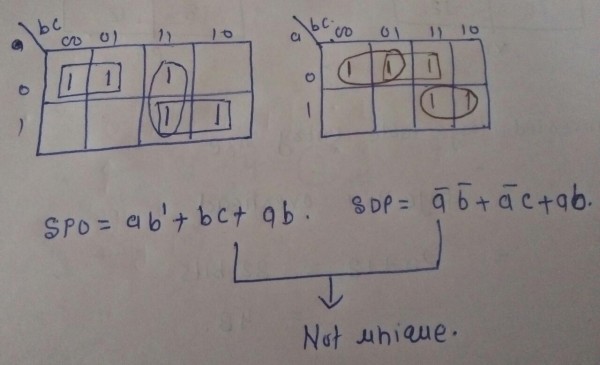 a bc 00 01 11 10
0 1 1 1
1 1 1
a bc 00 01 11 10
0 1 1 1
1 1 1
SPO = ab' + bc + ab. SOP = a̅ b̅ + a̅ c + ab.
Not unique.